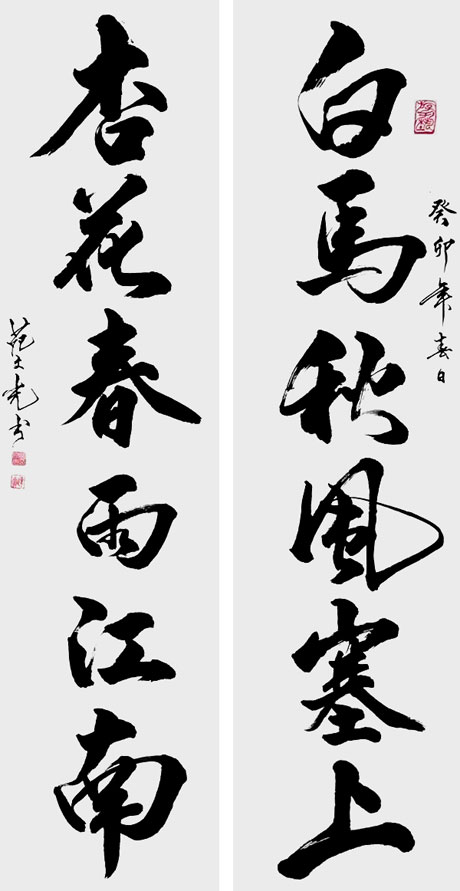 白馬秋風塞上
癸卯年春日
杏花春雨江南
范文光书